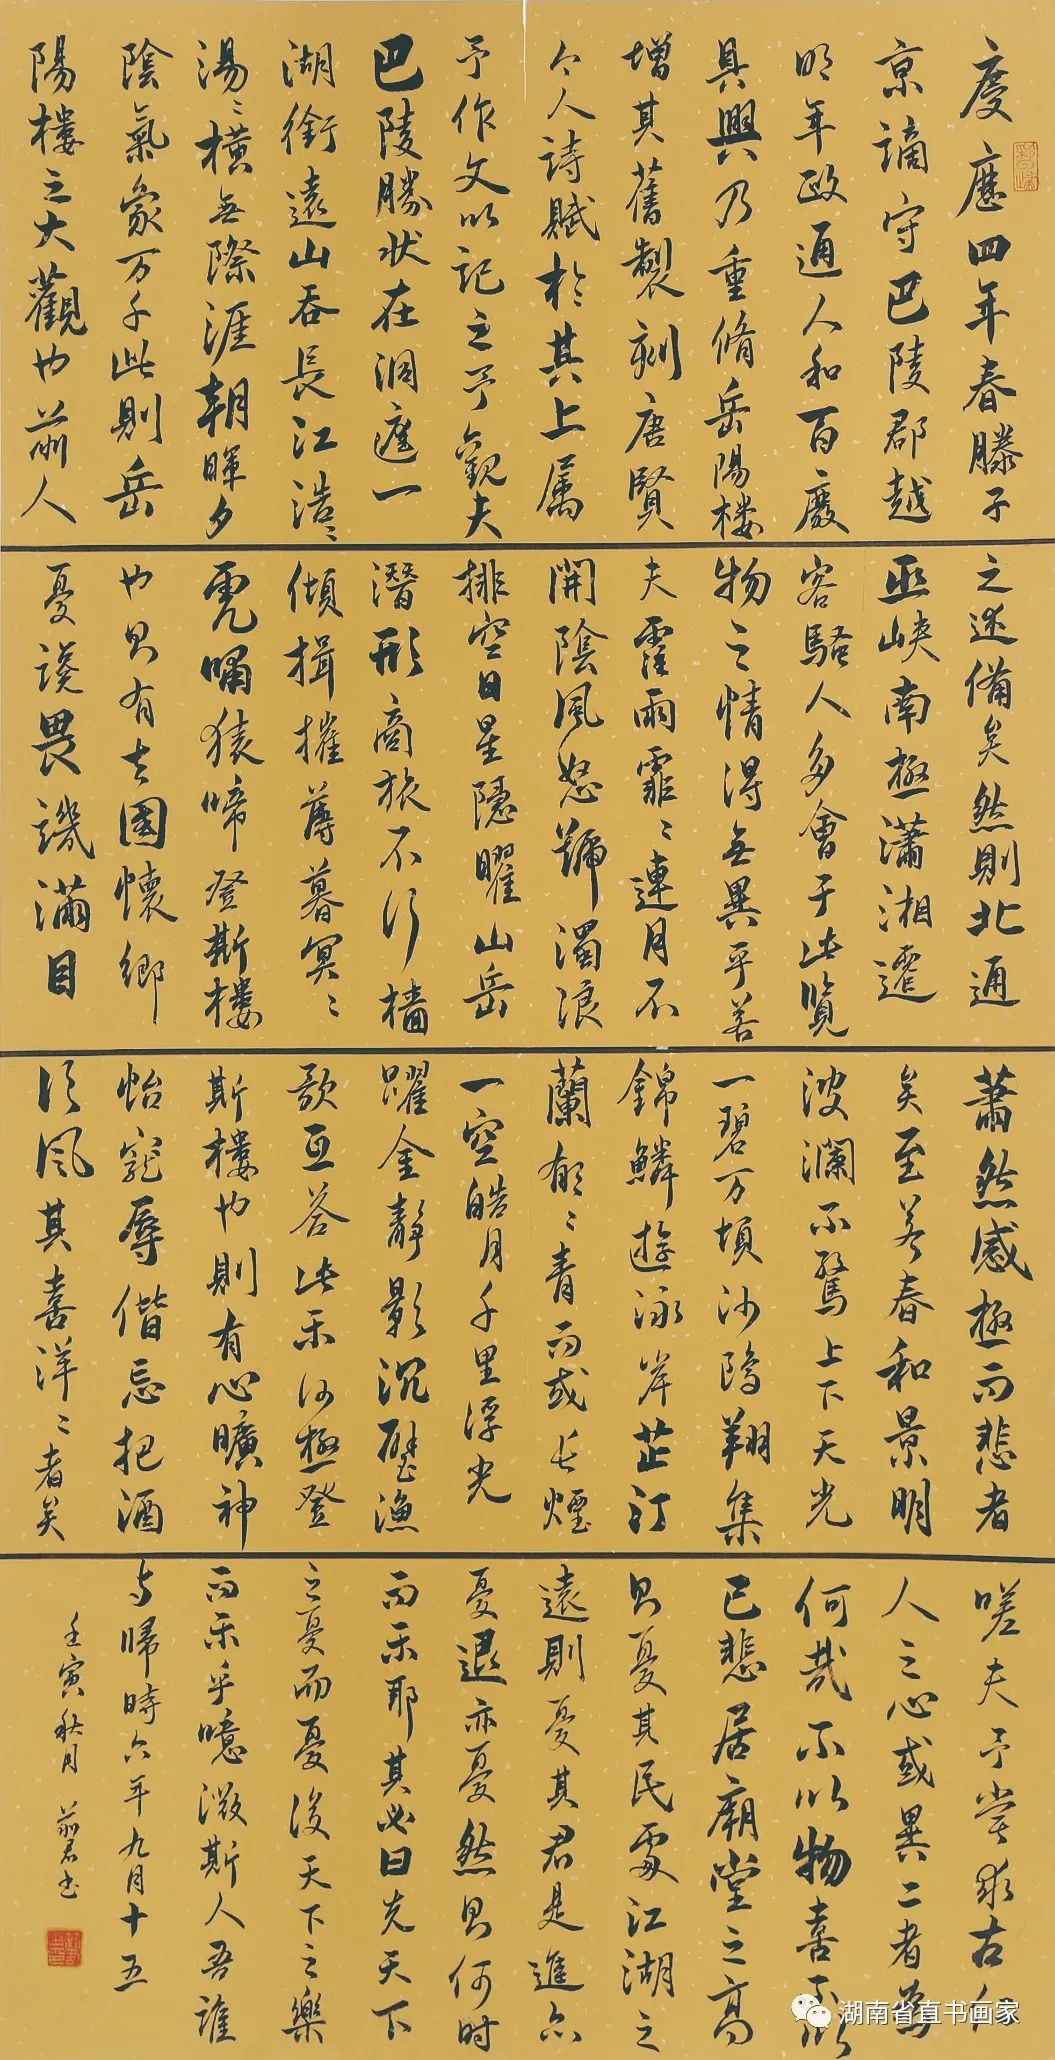 慶曆四年春滕子
京謫守巴陵郡越
明年政通人和百廢
具興乃重脩岳陽樓
增其舊製刻唐賢
今人詩賦於其上属
予作文以記之予觀夫
巴陵勝狀在洞庭一
湖銜遠山吞長江浩〻
湯〻橫無際涯朝暉夕
陰氣象万千此則岳
陽樓之大觀也前人
之述備矣然則北通
巫峽南極瀟湘遷
客騷人多會于此覽
物之情得無異乎若
夫霪雨霏〻連月不
開陰風怒號濁浪
排空日星隱曜山岳
潛形商旅不行檣
傾楫摧薄暮冥〻
虎嘯猿啼登斯樓
也則有去國懷鄉
憂讒畏譏滿目
蕭然感極而悲者
矣至若春和景明
波瀾不驚上下天光
一碧万頃沙鷗翔集
錦鱗遊泳岸芷汀
蘭郁〻青而或長煙
一空皓月千里浮光
躍金靜影沉璧漁
歌互答此樂何極登
斯樓也則有心曠神
怡寵辱偕忘把酒
臨風其喜洋〻者矣
嗟夫予嘗求古仁
人之心或異二者為
何哉不以物喜不以
己悲居廟堂之高
則憂其民處江湖之
遠則憂其君是進亦
憂退亦憂然則何時
而樂耶其必曰先天下
之憂而憂後天下之樂
而樂乎噫微斯人吾誰
与歸時六年九月十五
壬寅秋月
湖南省直书画家